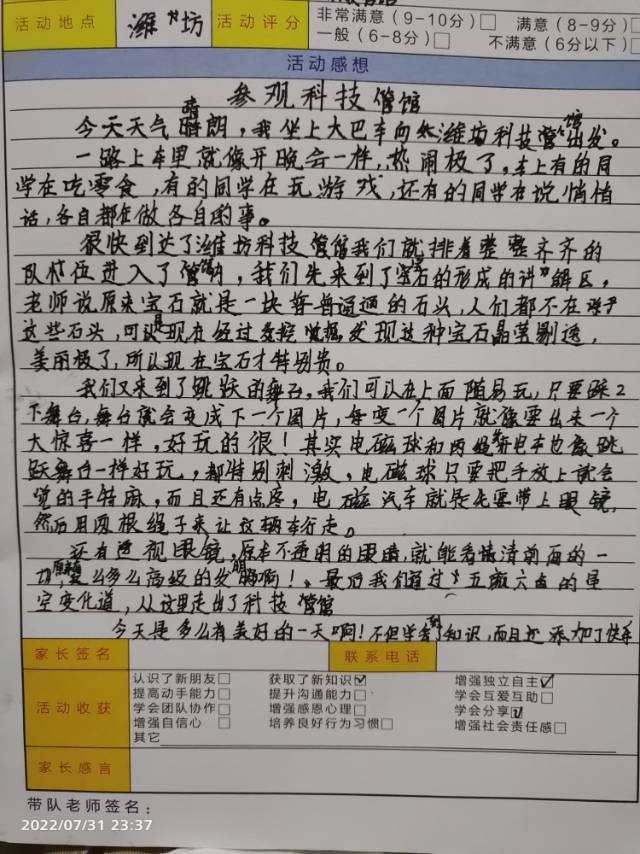 活动地点 潍坊 活动评分 非常满意（9-10分）□ 满意（8-9分）□
一般（6-8分）□ 不满意（6分以下）□
活动感想
参观科技馆
今天天气晴朗，我坐上大巴车向潍坊科技馆出发。
一路上车里就像开晚会一样，热闹极了。车上有的同
学在吃零食，有的同学在玩游戏，还有的同学在说悄悄
话，各自都在做各自的事。
很快到达了潍坊科技馆我们就排着整整齐齐的
队位进入了馆内，我们先来到了宝石的形成的讲解区，
老师说原来宝石就是一块普普通通的石头，人们都不在乎
这些石头，可是现在经过挖掘发现这种宝石晶莹剔透，
美丽极了，所以现在宝石才特别贵。
我们又来到了跳跃的舞台。我们可以在上面随易玩，只要踩2
下舞台，舞台就会变成下一个图片，每变一个图片就像要出来一个
大惊喜一样，好玩的很！其实电磁球和电车也像跳
跃舞台一样好玩，都特别刺激，电磁球只要把手放上就会
觉的手特麻，而且还有点疼，电磁汽车就是先要带上眼镜，
然后用两根绳子来让这辆车行走。
还有透视眼镜，原本不透明的眼睛，就能看清清前面的一
切，原来有多么高级的发明啊！最后我们通过五颜六色的星
空变化道，从这里走出了科技馆
今天是多么有美好的一天啊！不但学到了知识，而且还添加了快乐
家长签名 联系电话
活动收获
认识了新朋友□ 获取了新知识☑ 增强独立自主☑
提高动手能力□ 提升沟通能力□ 学会互爱互助□
学会团队协作□ 增强感恩心理□ 学会分享☑
增强自信心 □ 培养良好行为习惯□ 增强社会责任感□
其它
家长感言
带队老师签名：
2022/07/31 23:37